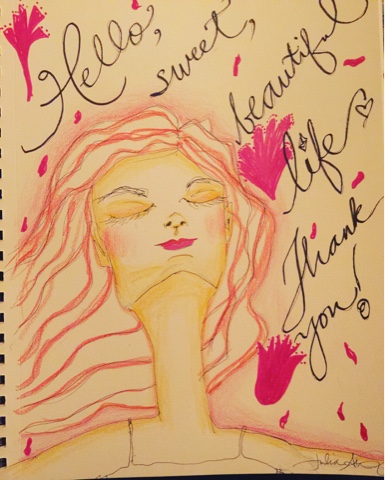 Hello,
sweet,
beautiful
life
Thank
you!